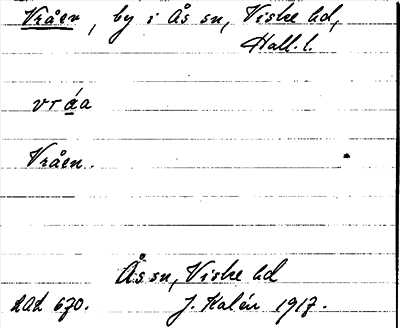 Vråen, by i Ås sn, Viske hd,
Hall. l.
vrá̱a
Vråen.
Ås sn, Viske hd
AOH 670. J. Kalén 1917.